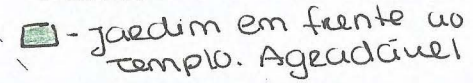 - Jardim em frente ao
templo. Agradável